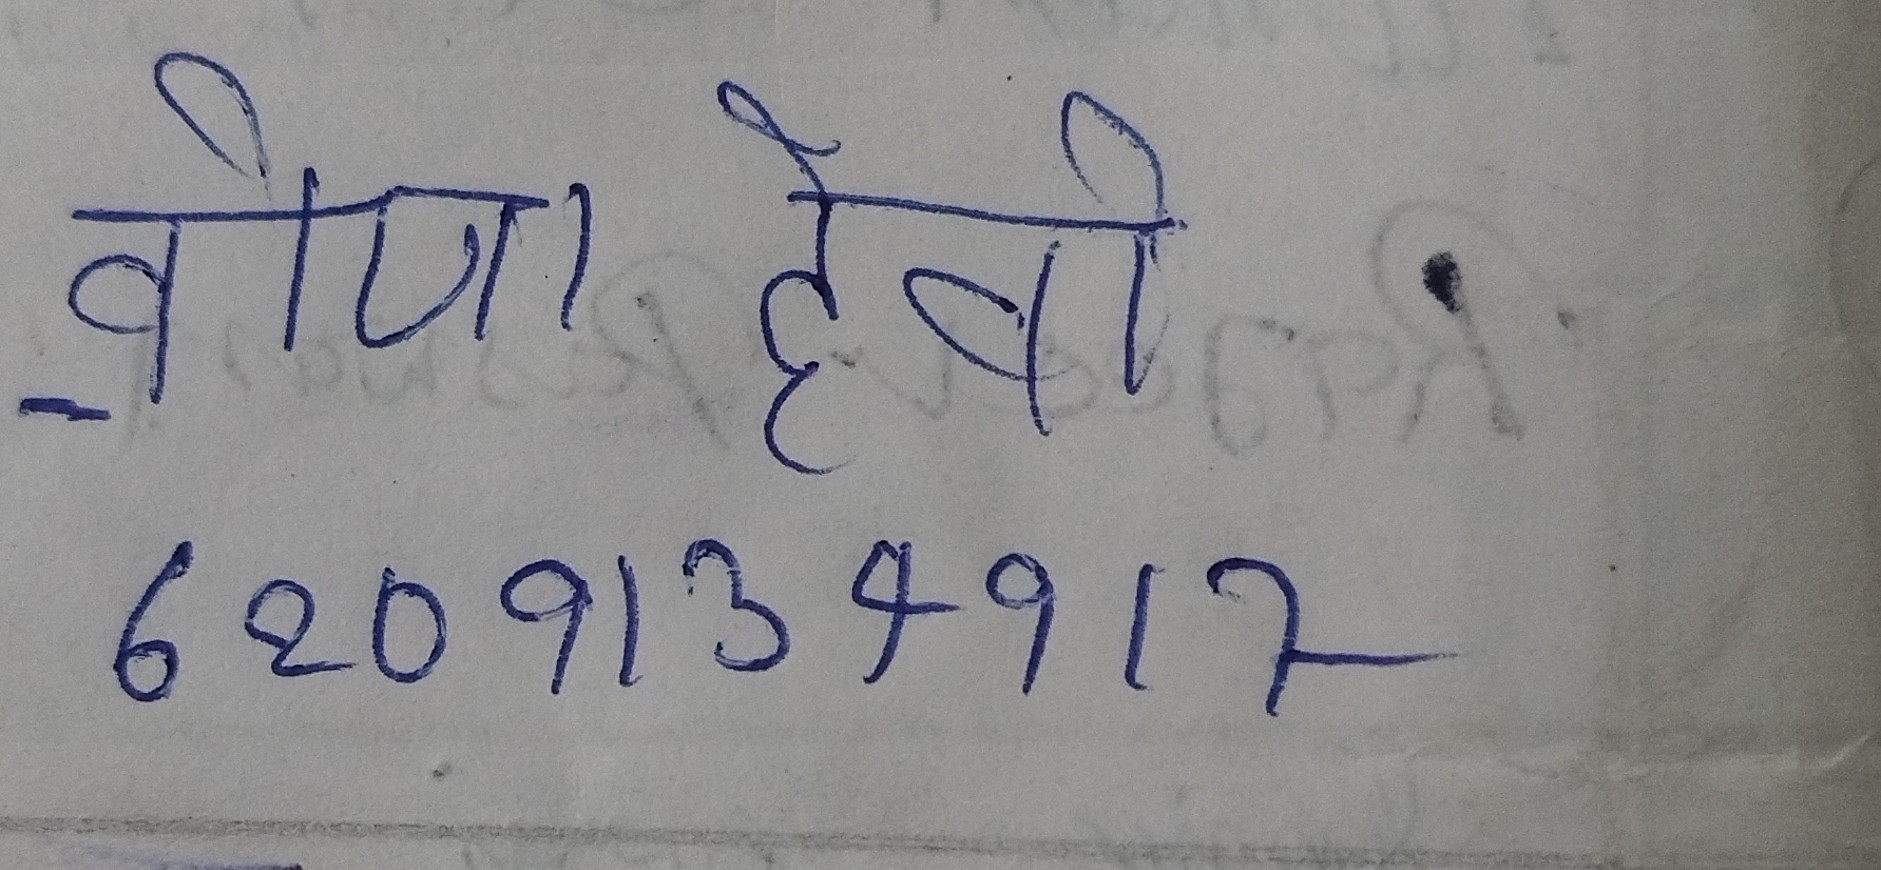 वीणा देवी
6209134917